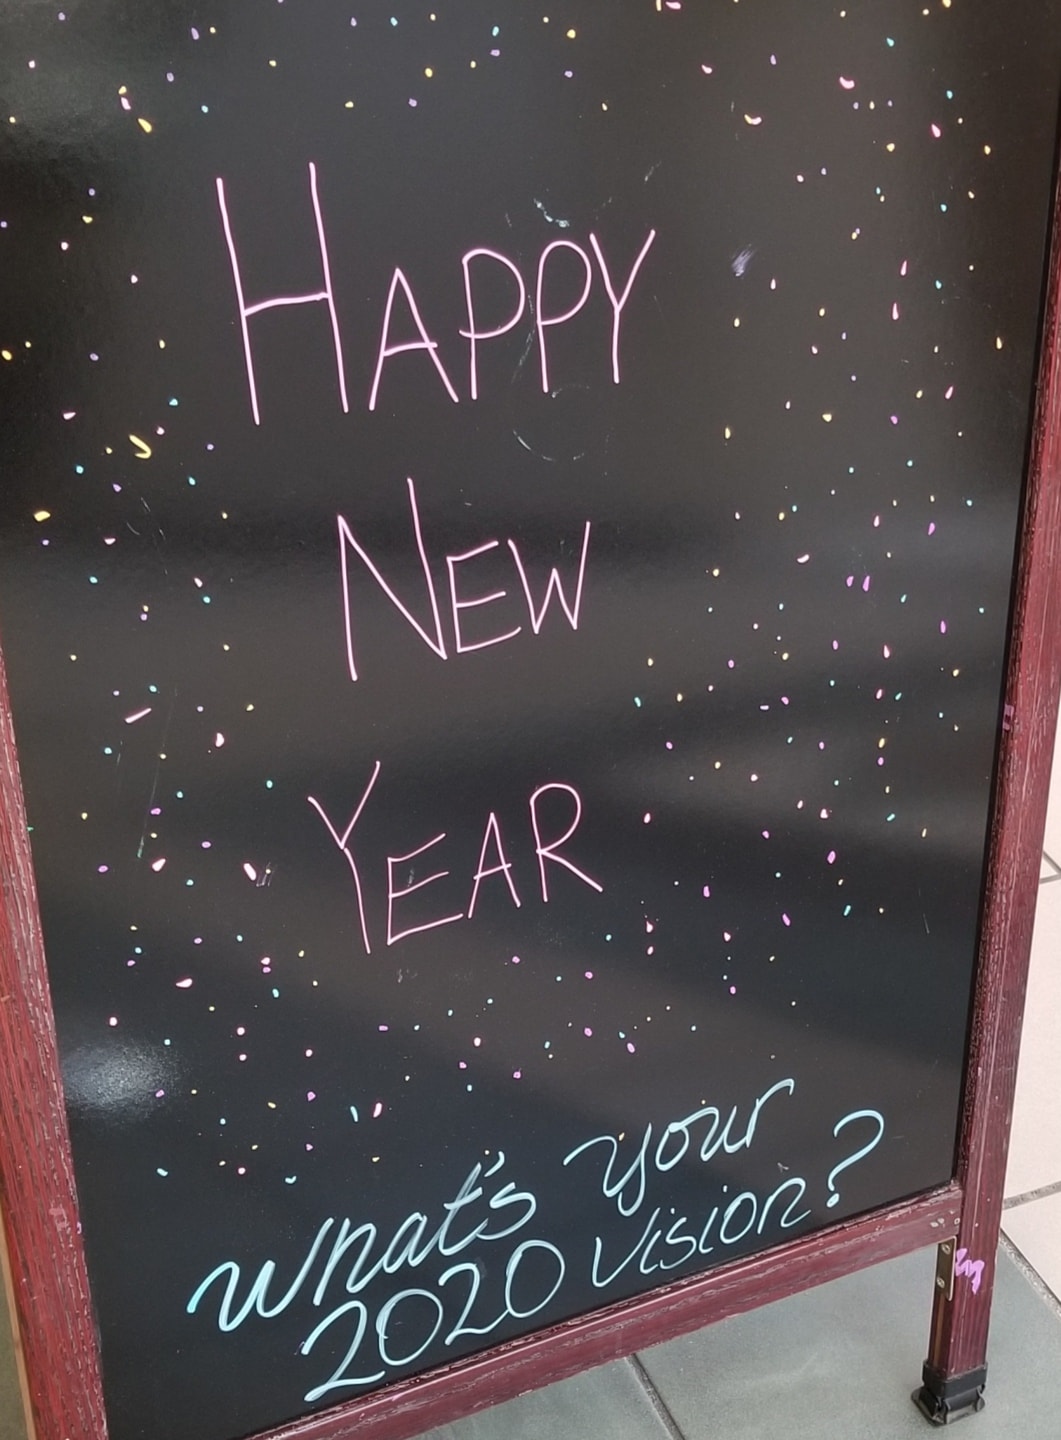 HAPPY
NEW
YEAR
What's your
2020 Vision?